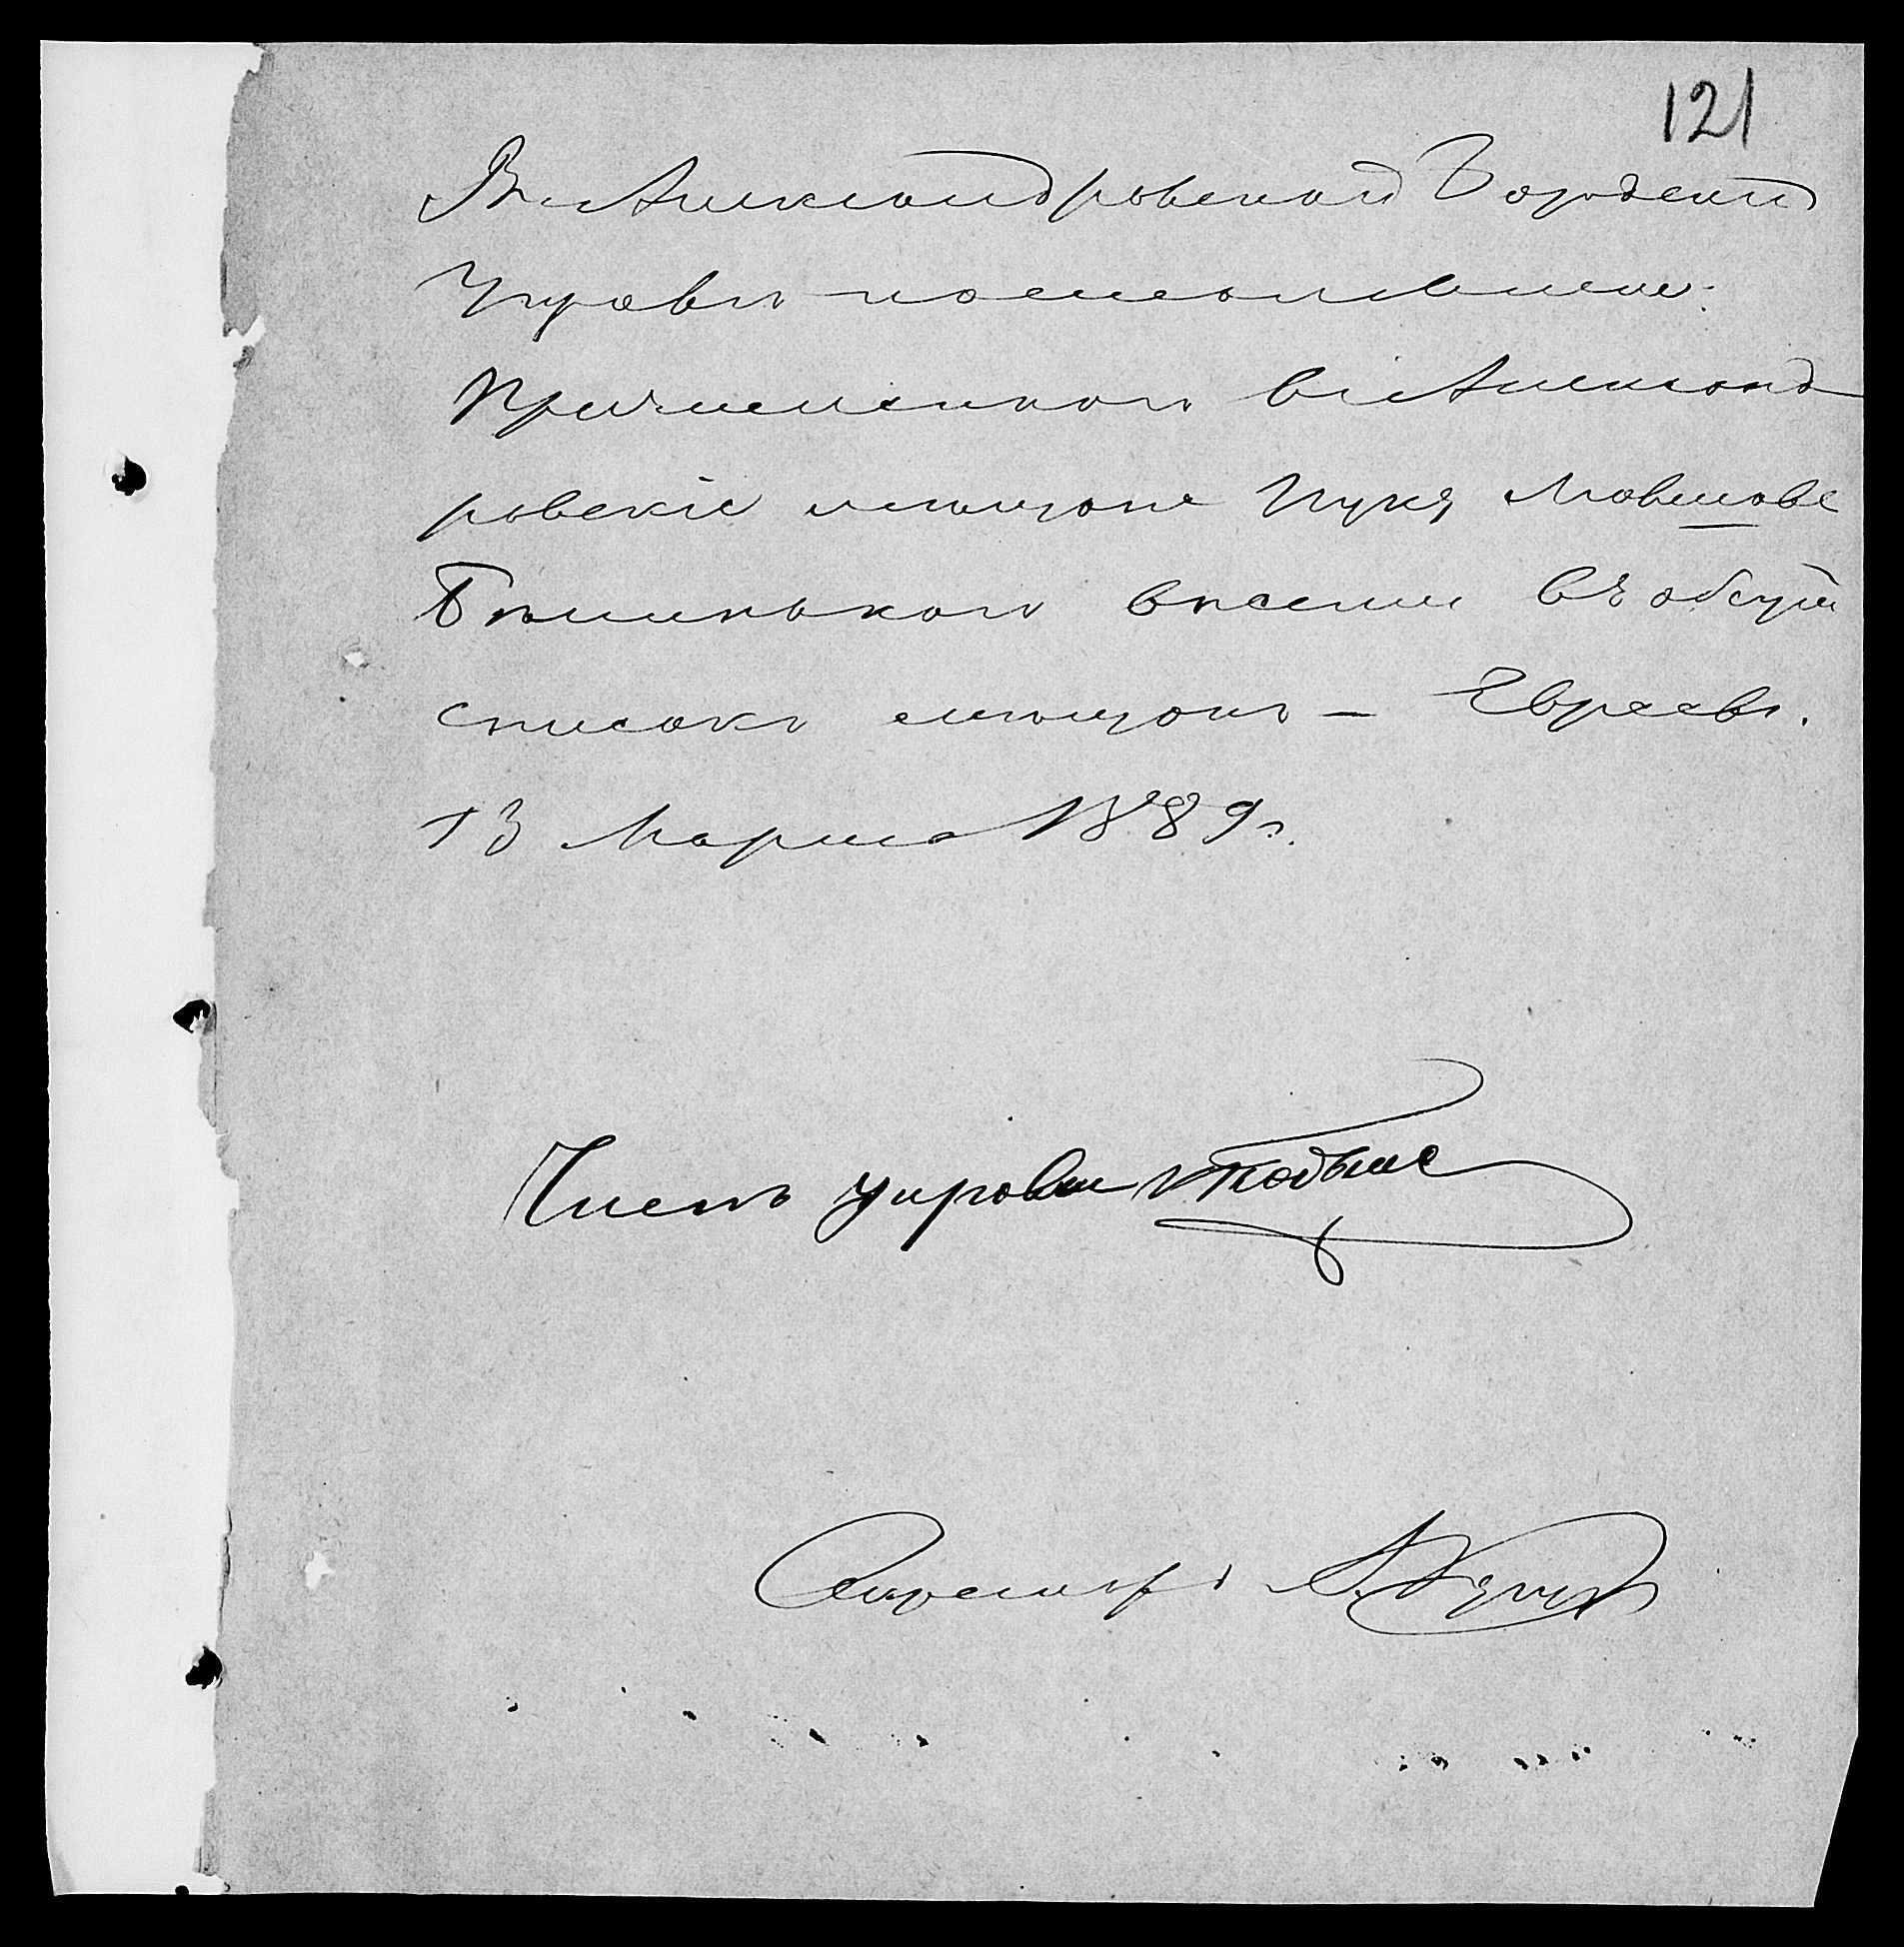 121
Въ Александровской Городской
Управѣ постановлено:
Причисленнаго въ Александ
ровскіе мѣщане Ицка Мовшова
Бѣлинькаго внести въ общій
списокъ мѣщанъ – Евреевъ.
13 Марта 1889 г.
Членъ управы
Секретарь